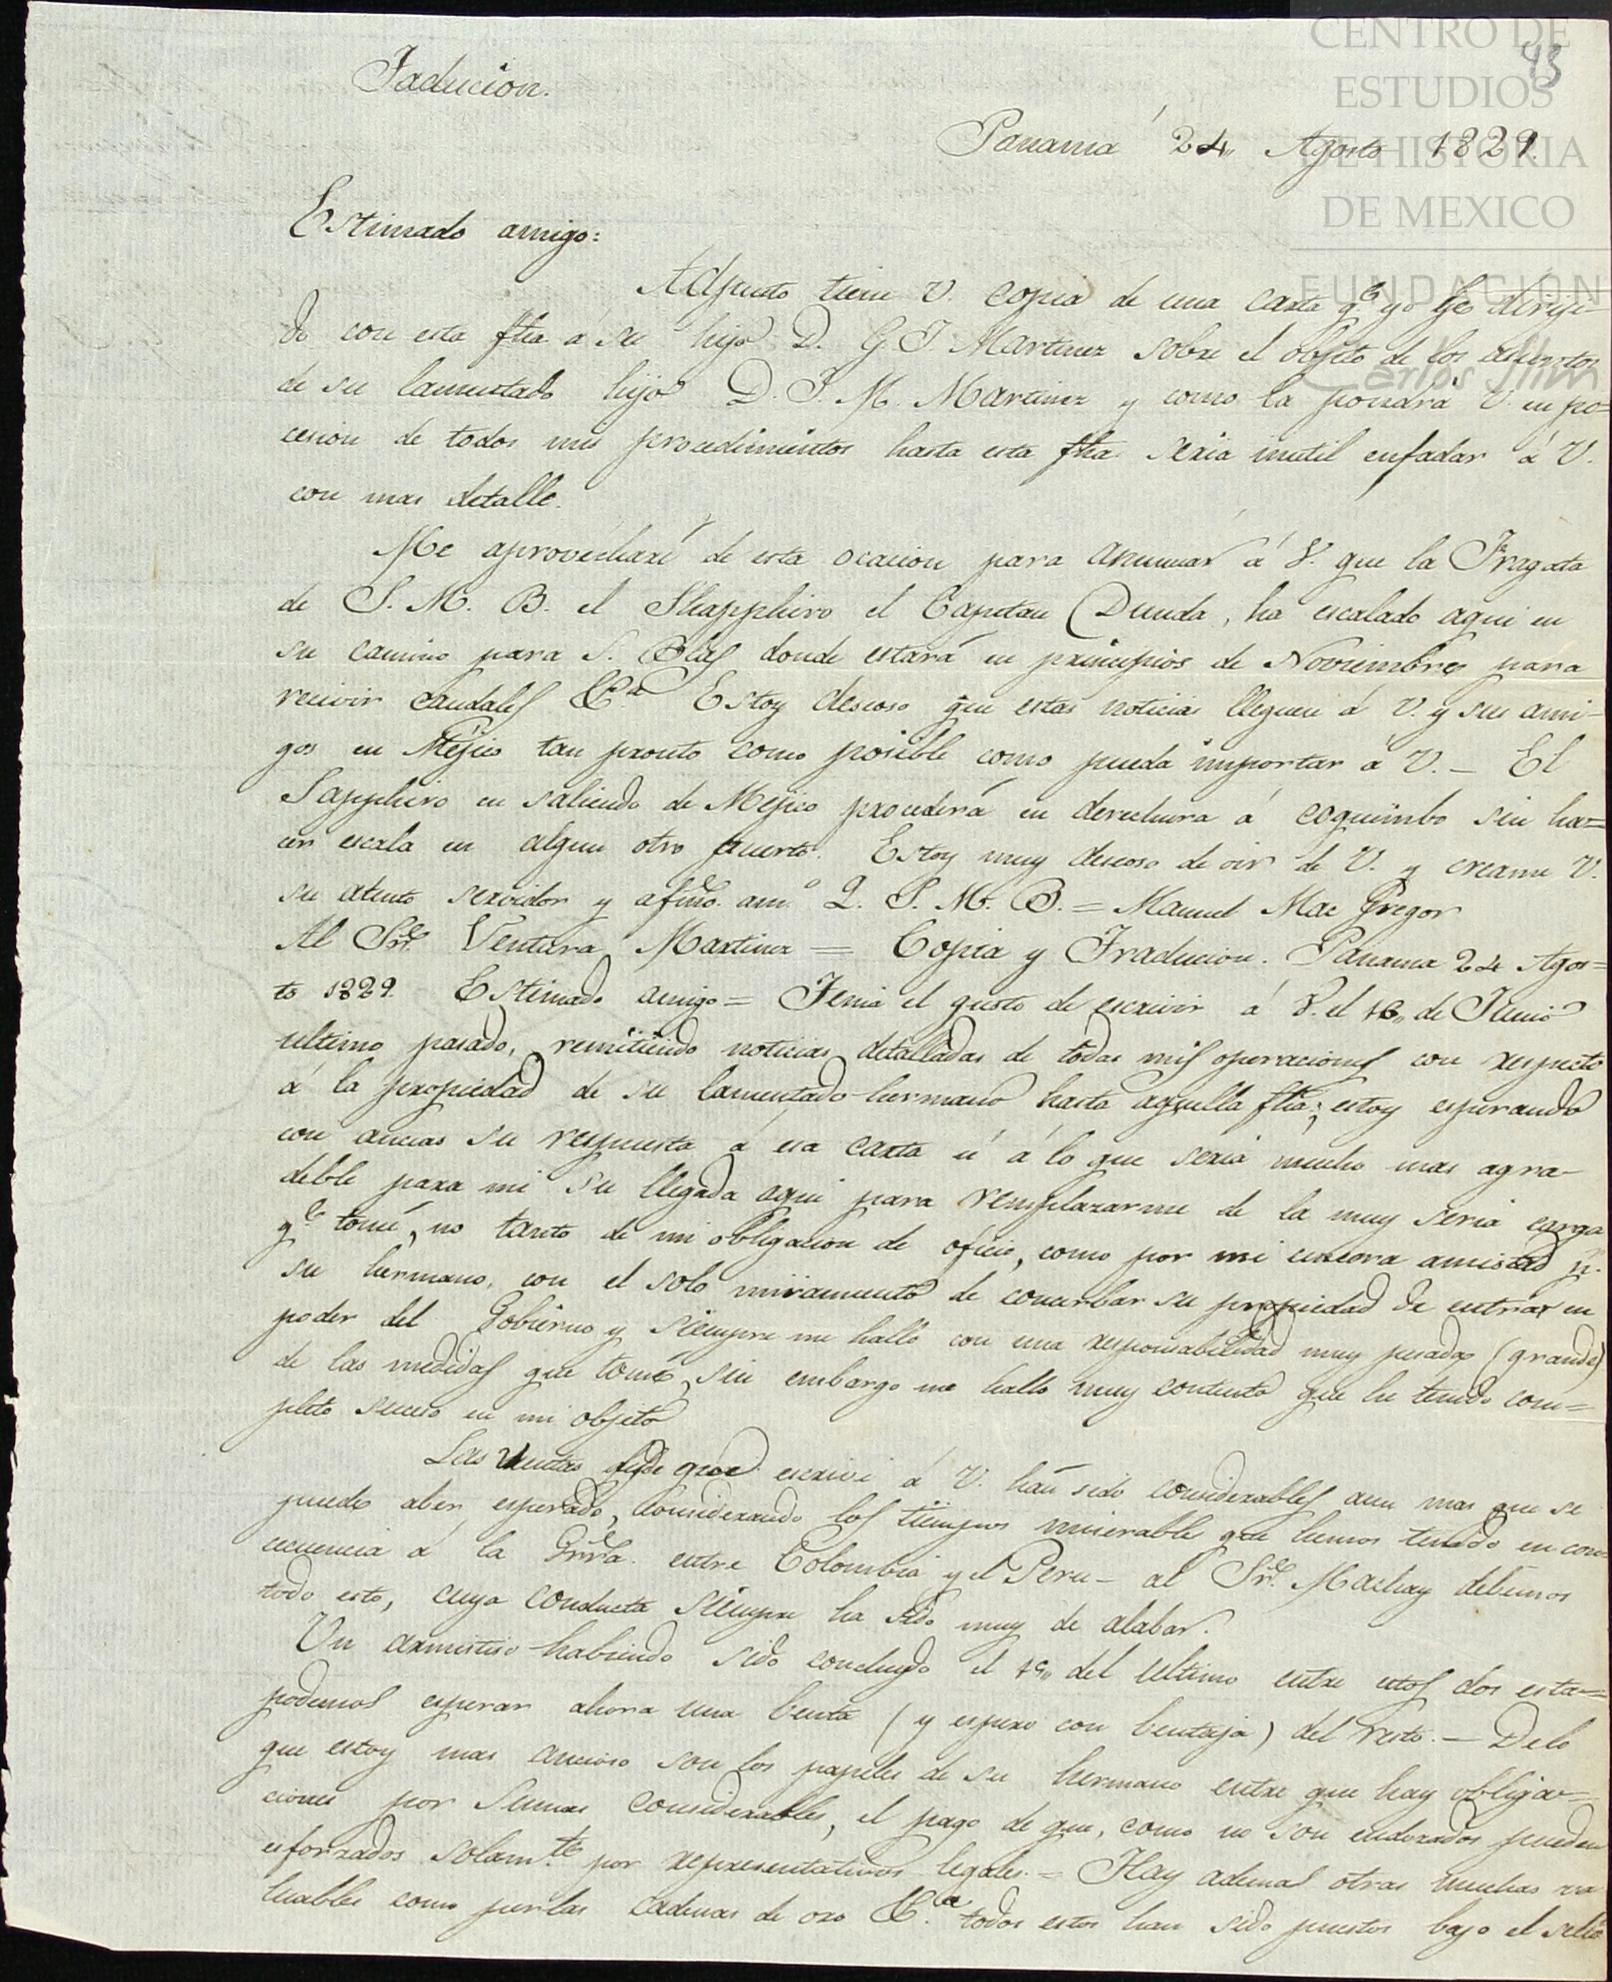 43
CENTRO DE
ESTUDIOS
DE HISTORIA
DE MEXICO
FUNDACIÓN
Carlos Slim
Traducion.
Panamá 24,, Agosto 1829.
Estimado amigo:
Adjunto tiene V. copia de una carta q.e yo he diriji-
do con esta fha a su hijo D. G. I. Martinez sobre el objeto de los asuntos
de su lamentado hijo D. J. M. Martinez y como la pondrá V. en po=
cesion de todos mis procedimientos hasta esta fha. seria inutil enfadar á V.
con mas detalle.
Me aprovecharé de esta ocacion para anunciar á V. que la Fragata
de S. M. B. el Shapphiro el Capitan Dunda, ha escalado aqui en
su camino para S. Blas donde estará en principios de Noviembre para
recivir caudales &c.a Estoy deseoso que estas noticias lleguen á V. y sus ami-
gos en Mejico tan pronto como posible como pueda importar á V. — El
Sapphiro en saliendo de Mejico procederá en derechura á coquimbo sin ha=
cer escala en algun otro puerto. Estoy muy deseoso de oir de V. y creame V.
su atento servidor y afmo. am.o Q. S. M. B. = Manuel Mac Gregor
Al Sr. Ventura Martinez = Copia y Traducion. Panama 24 Agos=
to 1829. Estimado amigo = Tenia el gusto de escrivir á V. el 16,, de Junio
ultimo pasado, remitiendo noticias detalladas de todas mis operaciones con respecto
á la propiedad de su lamentado hermano hasta aquella fha; estoy esperando
con ancias su respuesta á esa carta ú á lo que seria mucho mas agra-
deble para mi su llegada aqui para remplazarme de la muy seria carga
q.e tomé, no tanto de mi obligacion de oficio, como por mi cincera amistad p.
su hermano, con el solo miiramiento de concerbar su propiedad de entrar en
poder del Gobierno y siempre me hallo con una responsabilidad muy pesada (grande)
de las medidas que tomé, sin embargo me hallo muy contento que he tenido com=
pleto suceso en mi objeto
Las ventas desde que escrivi á V. hán sido considerables aun mas que se
puede aber esperado, considerando los tiempos miserables que hemos tenido en con=
cecuencia á la Grra. entre Colombia y el Peru — al Sr. Mackay debemos
todo esto, cuya conducta siempre ha sido muy de alabar.
Un armistiso habiendo sido concluydo el del ultimo entre estos dos esta=
podemos esperar ahora una benta (y espero con bentaja) del resto. — De lo
que estoy mas ancioso son los papeles de su hermano entre que hay obliga=
ciones por sumas considerables, el pago de que, como no son endozados pueden
esforzados solam.te por representativos legales. = Hay ademas otras muchas va
luables como perlas cadenas de oro &c.a todos estos han sido puestos bajo el sello